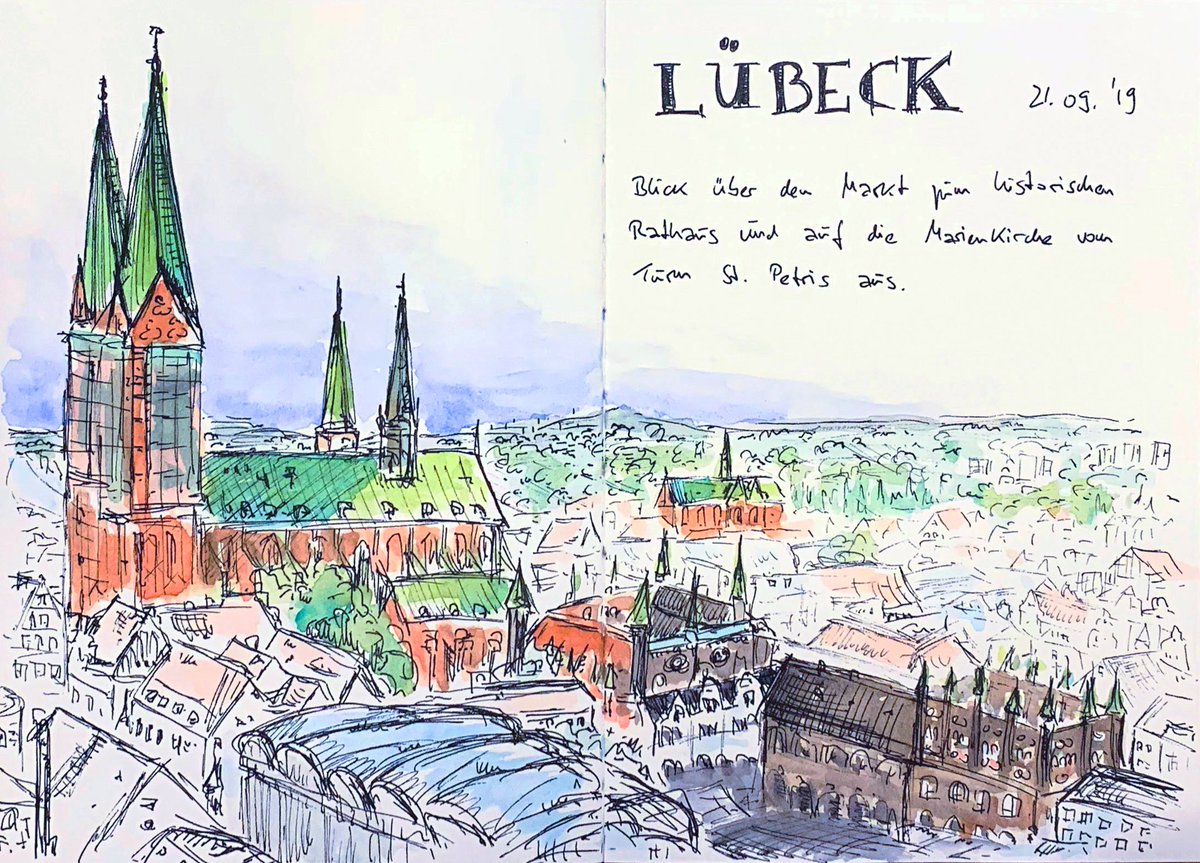 LÜBECK 21.09.'19
Blick über den Markt zum historischen
Rathaus und auf die Marienkirche vom
Turm St. Petris aus.